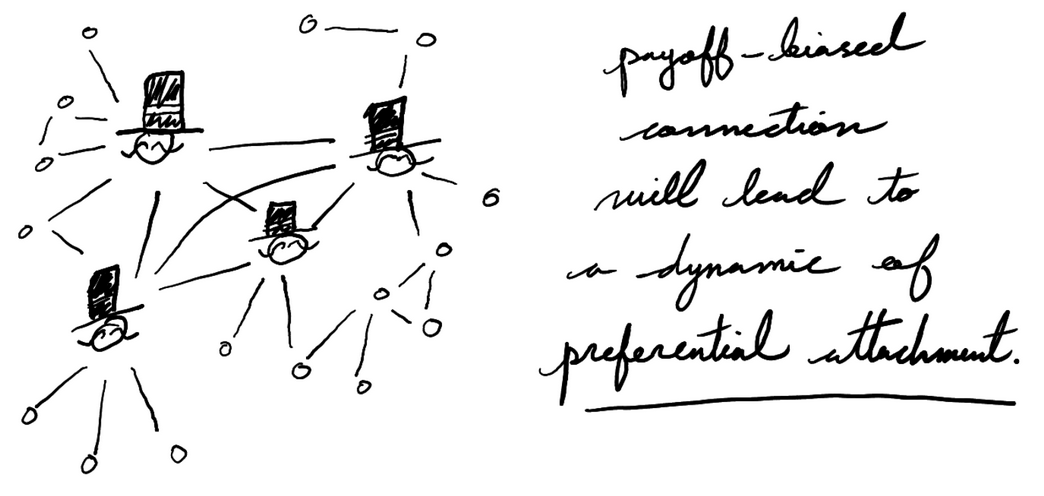 payoff-biased
connection
will lead to
a dynamic of
preferential attachment.